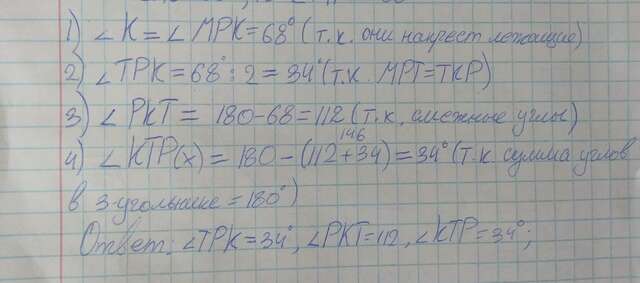 1) ∠K = ∠MPK = 68° (т.к. они накрест лежащие)
2) ∠TPK = 68° : 2 = 34° (т.к. MPT = TKP)
3) ∠PKT = 180 - 68 = 112 (т.к. смежные углы)
146
4) ∠KTP(x) = 180 - (112 + 34) = 34° (т.к. сумма углов
в 3-угольнике = 180°)
Ответ: ∠TPK = 34°, ∠PKT = 112, ∠KTP = 34°;